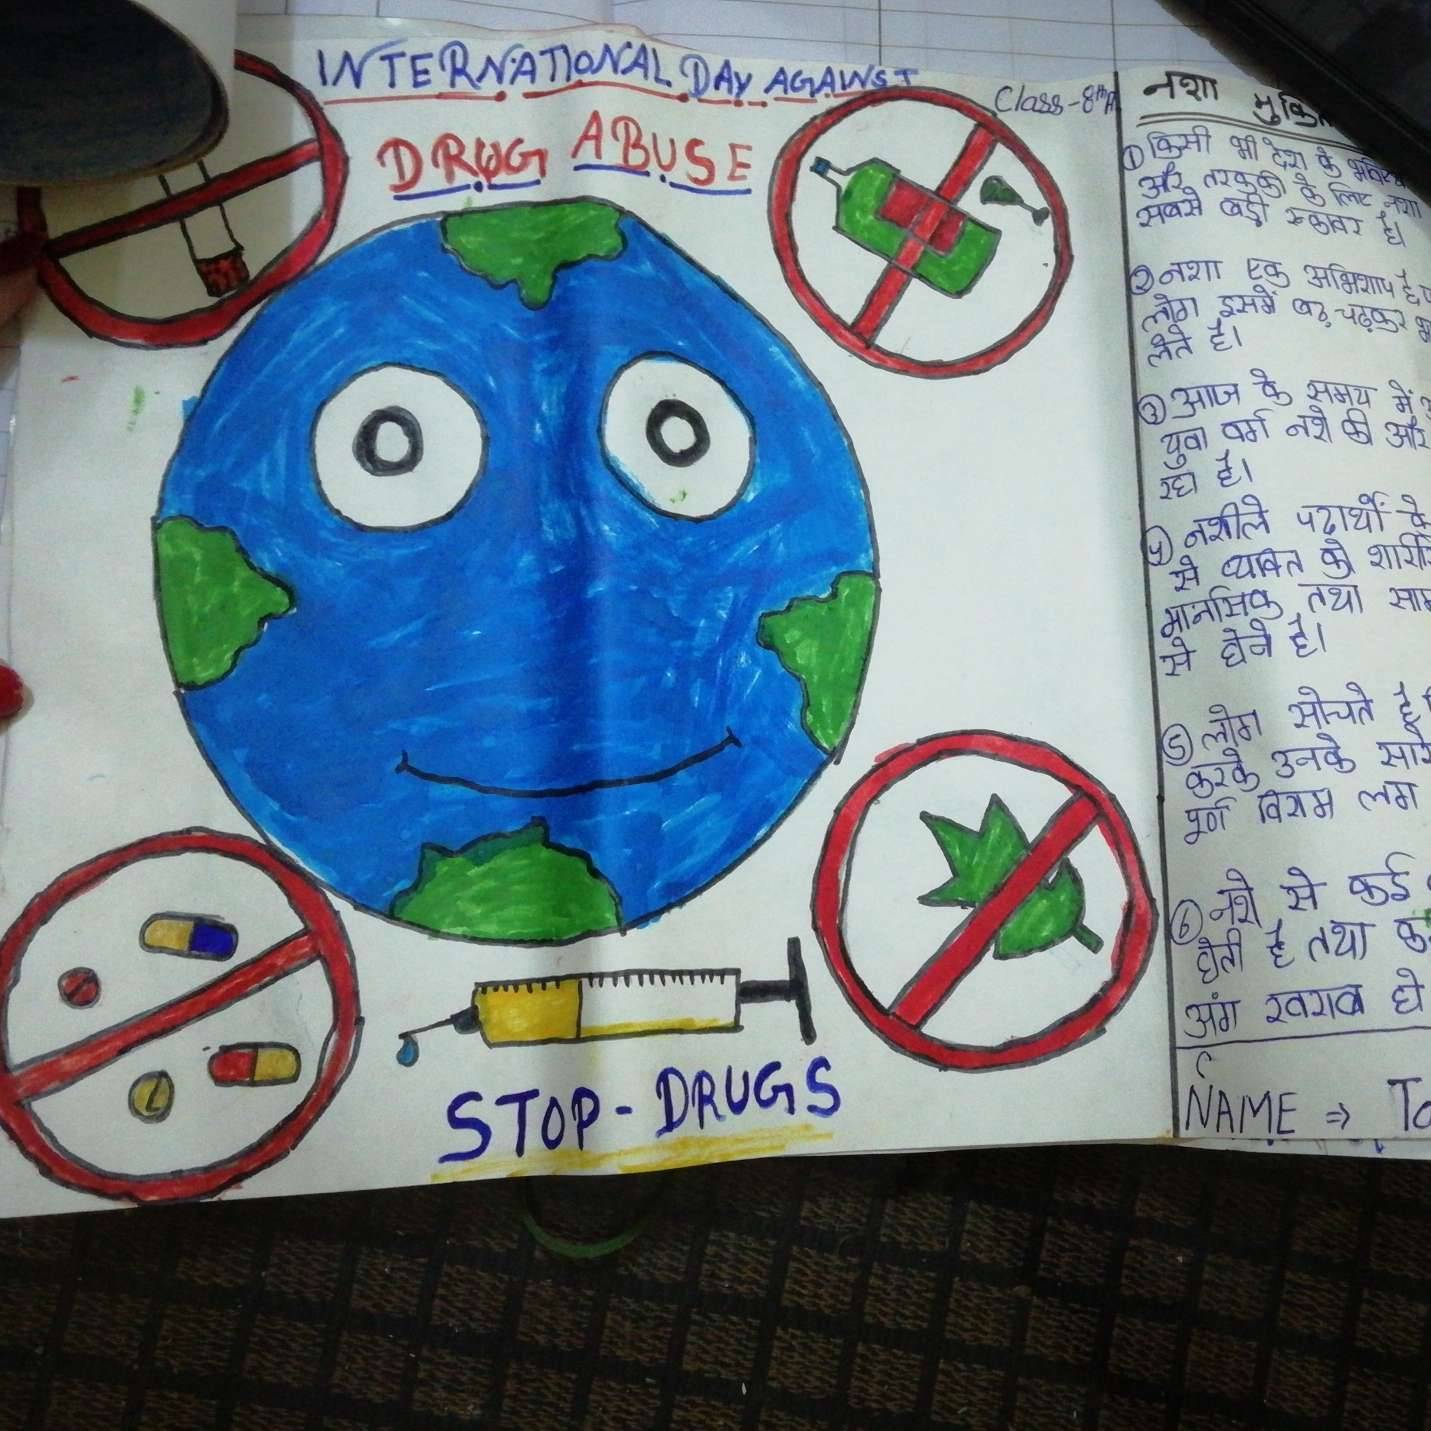 INTERNATIONAL DAY AGAINST
DRUG ABUSE
Class-8th A
नशा
① किसी भी देश के
और तरक्की के लिए नशा
सबसे बड़ी रुकावट है।
② नशा एक अभिशाप है
लोग इसमें बढ़ चढ़कर
लेते है।
③ आज के समय में
युवा वर्ग नशे की और
रहा है।
④ नशीले पदार्थो के
से व्यक्ति को
मानसिक तथा
से होने है।
⑤ लोग सोचते है
करके उनके सारे
पूर्ण विराम लग
⑥ नशे से कई
होती है तथा
अंग खराब हो
NAME ⇒
STOP-DRUGS